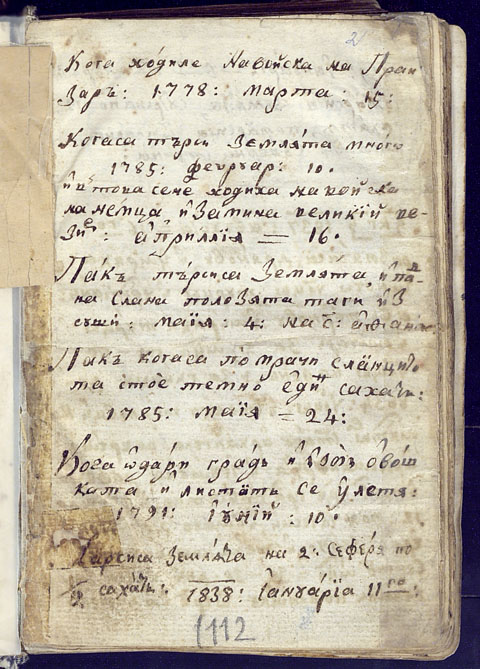 2
Кога ходиле На войска на Пран
Заръ: 1778: марта: 15:
Когаса търси Землѧта много
1785: февруар: 10.
и на това сене ходиха на войска
на немца, и Замина великий ве-
Зир: априллїа = 16.
Пакъ търсиса Землѧта, и па-
на слана лозѧта
суши: маїа: 4: на с: атана
Пакъ когаса помрачи слънцето
та стое темно един сахатъ:
1785: маїа = 24:
Кога ѡдари градъ и овош
ката и листатъ се улетѧ:
1791: Їунїй: 10.
Тарсиса Землѧта на 2: сеферѧ по
½ сахатъ: 1838: Їануарїа 11го:
112